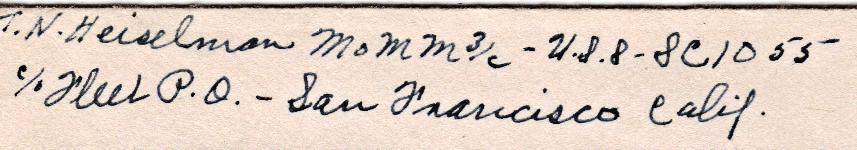 T. N. Heiselman MoMM 3/c - U.S.S - SC 1055
c/o Fleet P.O. - San Francisco Calif.